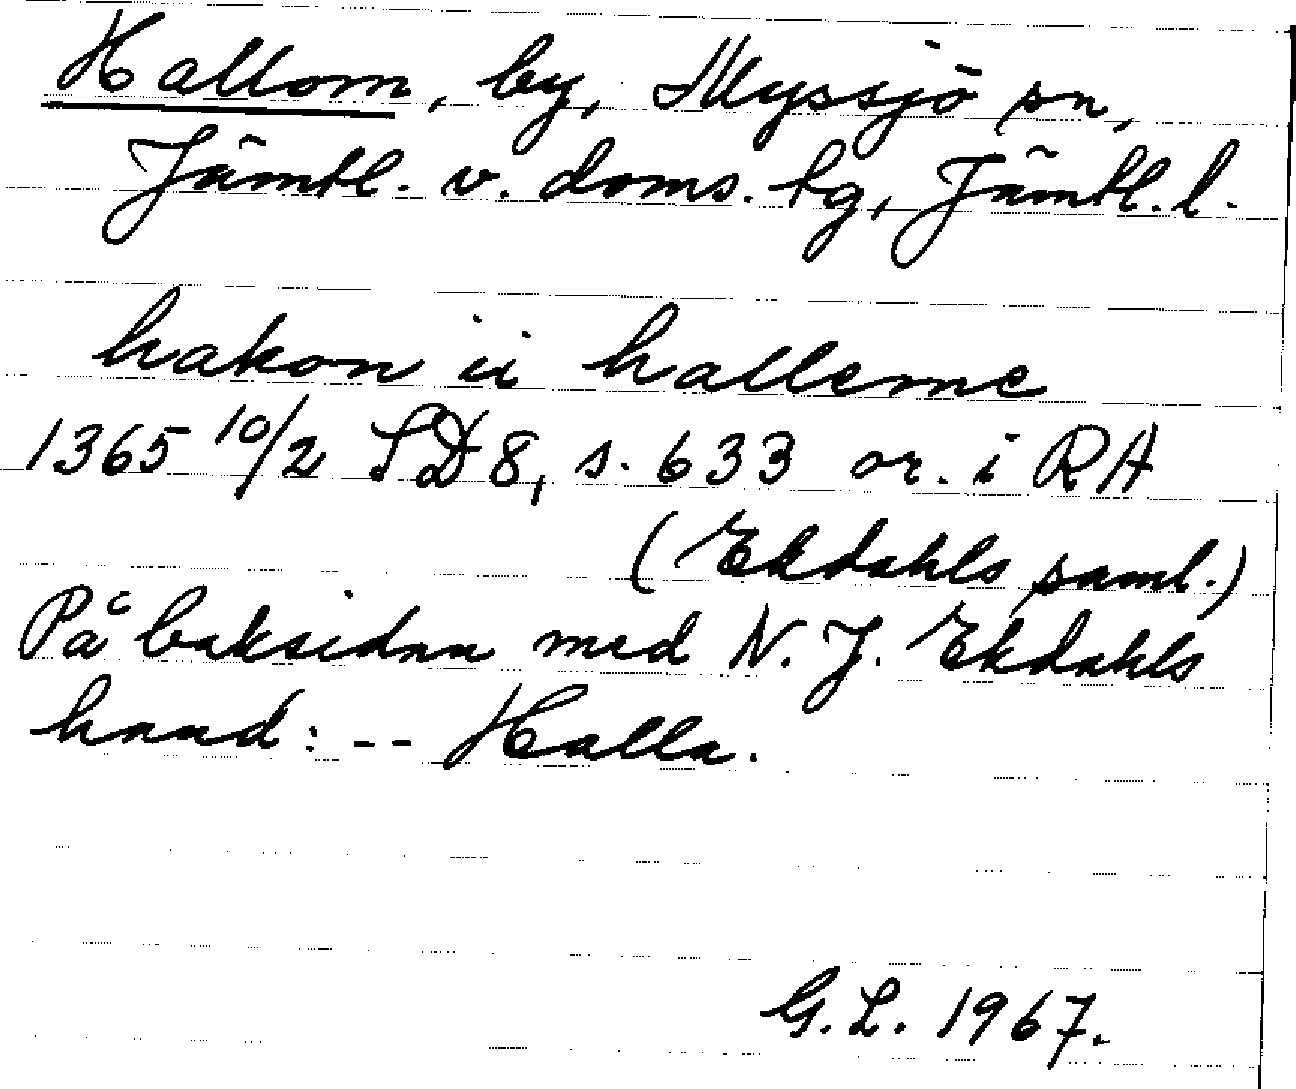 Hallom, by, Myssjö sn,
Jämtl. v. doms. tg, Jämtl. l.
hakon ii halleme
1365 10/2 SD 8, s. 633 or. i RA
(Ekdahls saml.)
På baksidan med N. J. Ekdahls
hand: -- Halla.
G. L. 1967.